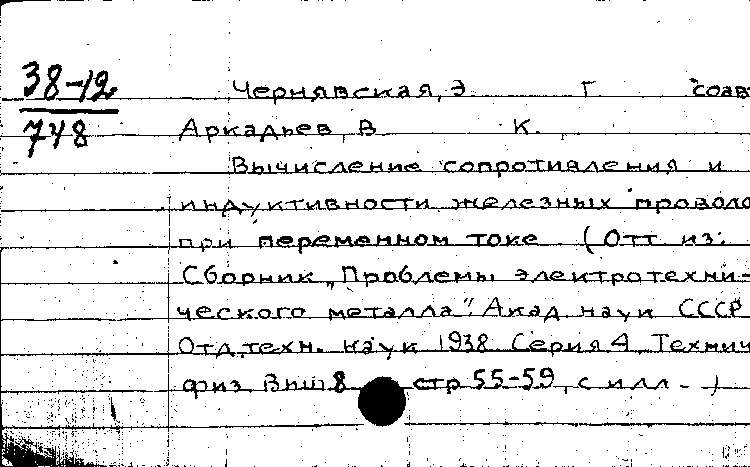 38-12
748
Чернявская, Э Г соав
Аркадьев, В К.
Вычисление сопротивления и
индуктивности железных провол
при переменном токе (Отт. из:
Сборник „Проблемы электротехни-
ческого металла". Акад. наук СССР
Отд. техн. наук 1938 Серия 4 Технич
физ. Вып 8 стр 55-59, с илл. )